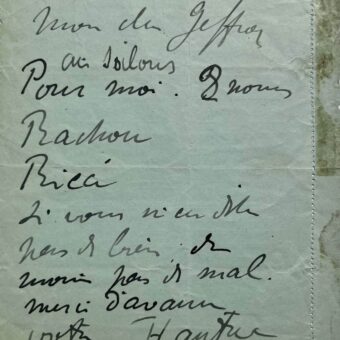 Mon cher Geffroy
au Salons
Pour moi. 2 noms
Rachou
Ricci
Si vous n'en dites
pas de bien, du
moins pas de mal.
merci d'avance
votre